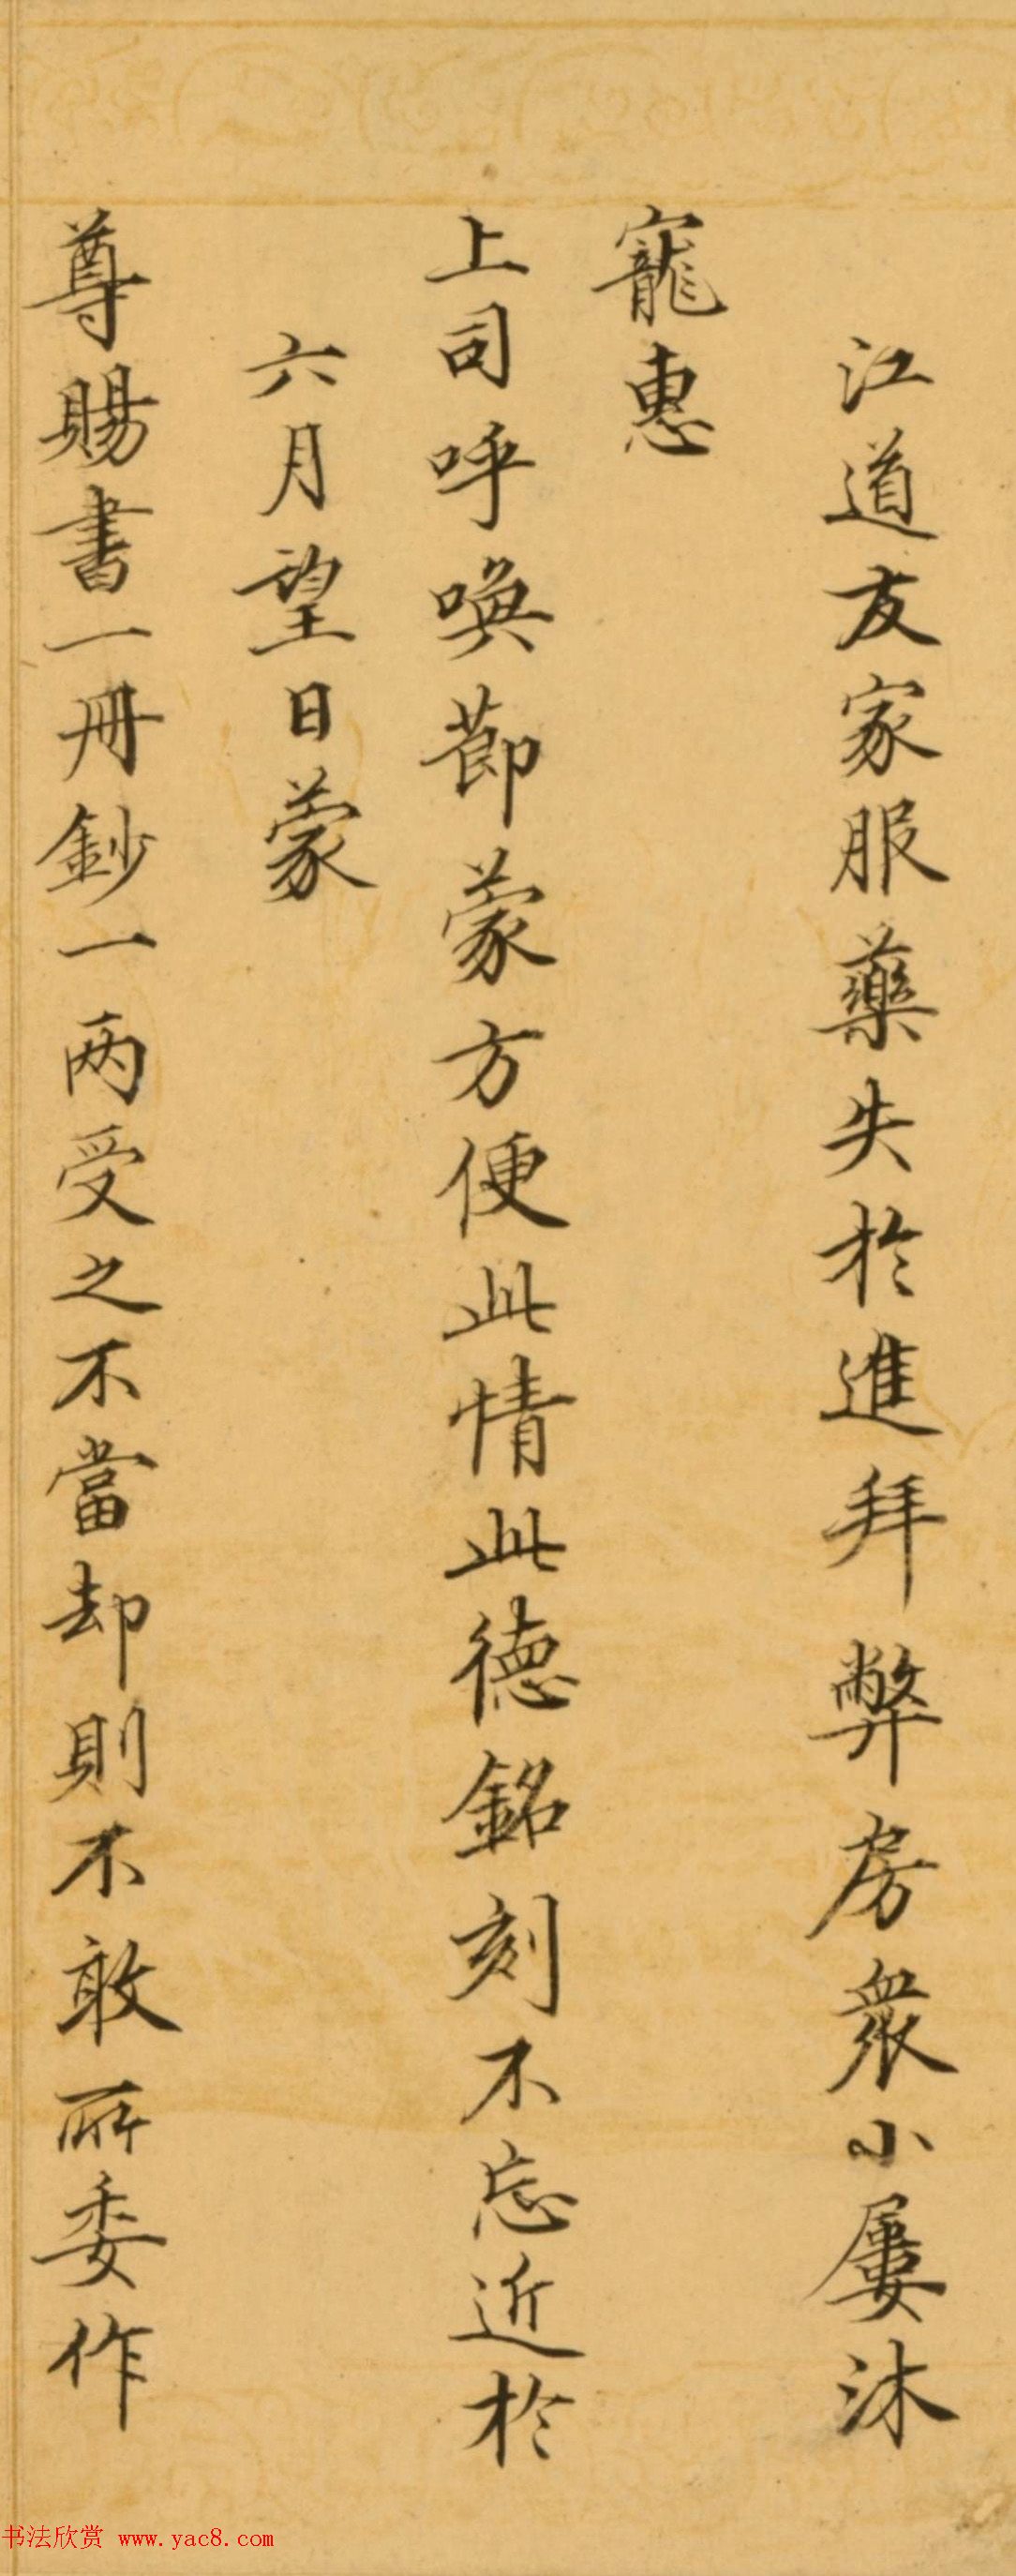 江道友家服藥失於進拜弊房衆小屢沐
寵惠
上司呼喚節蒙方便此情此德銘刻不忘近於
六月望日蒙
尊賜書一冊鈔一两受之不當却則不敢所委作
书法欣赏 www.yac8.com